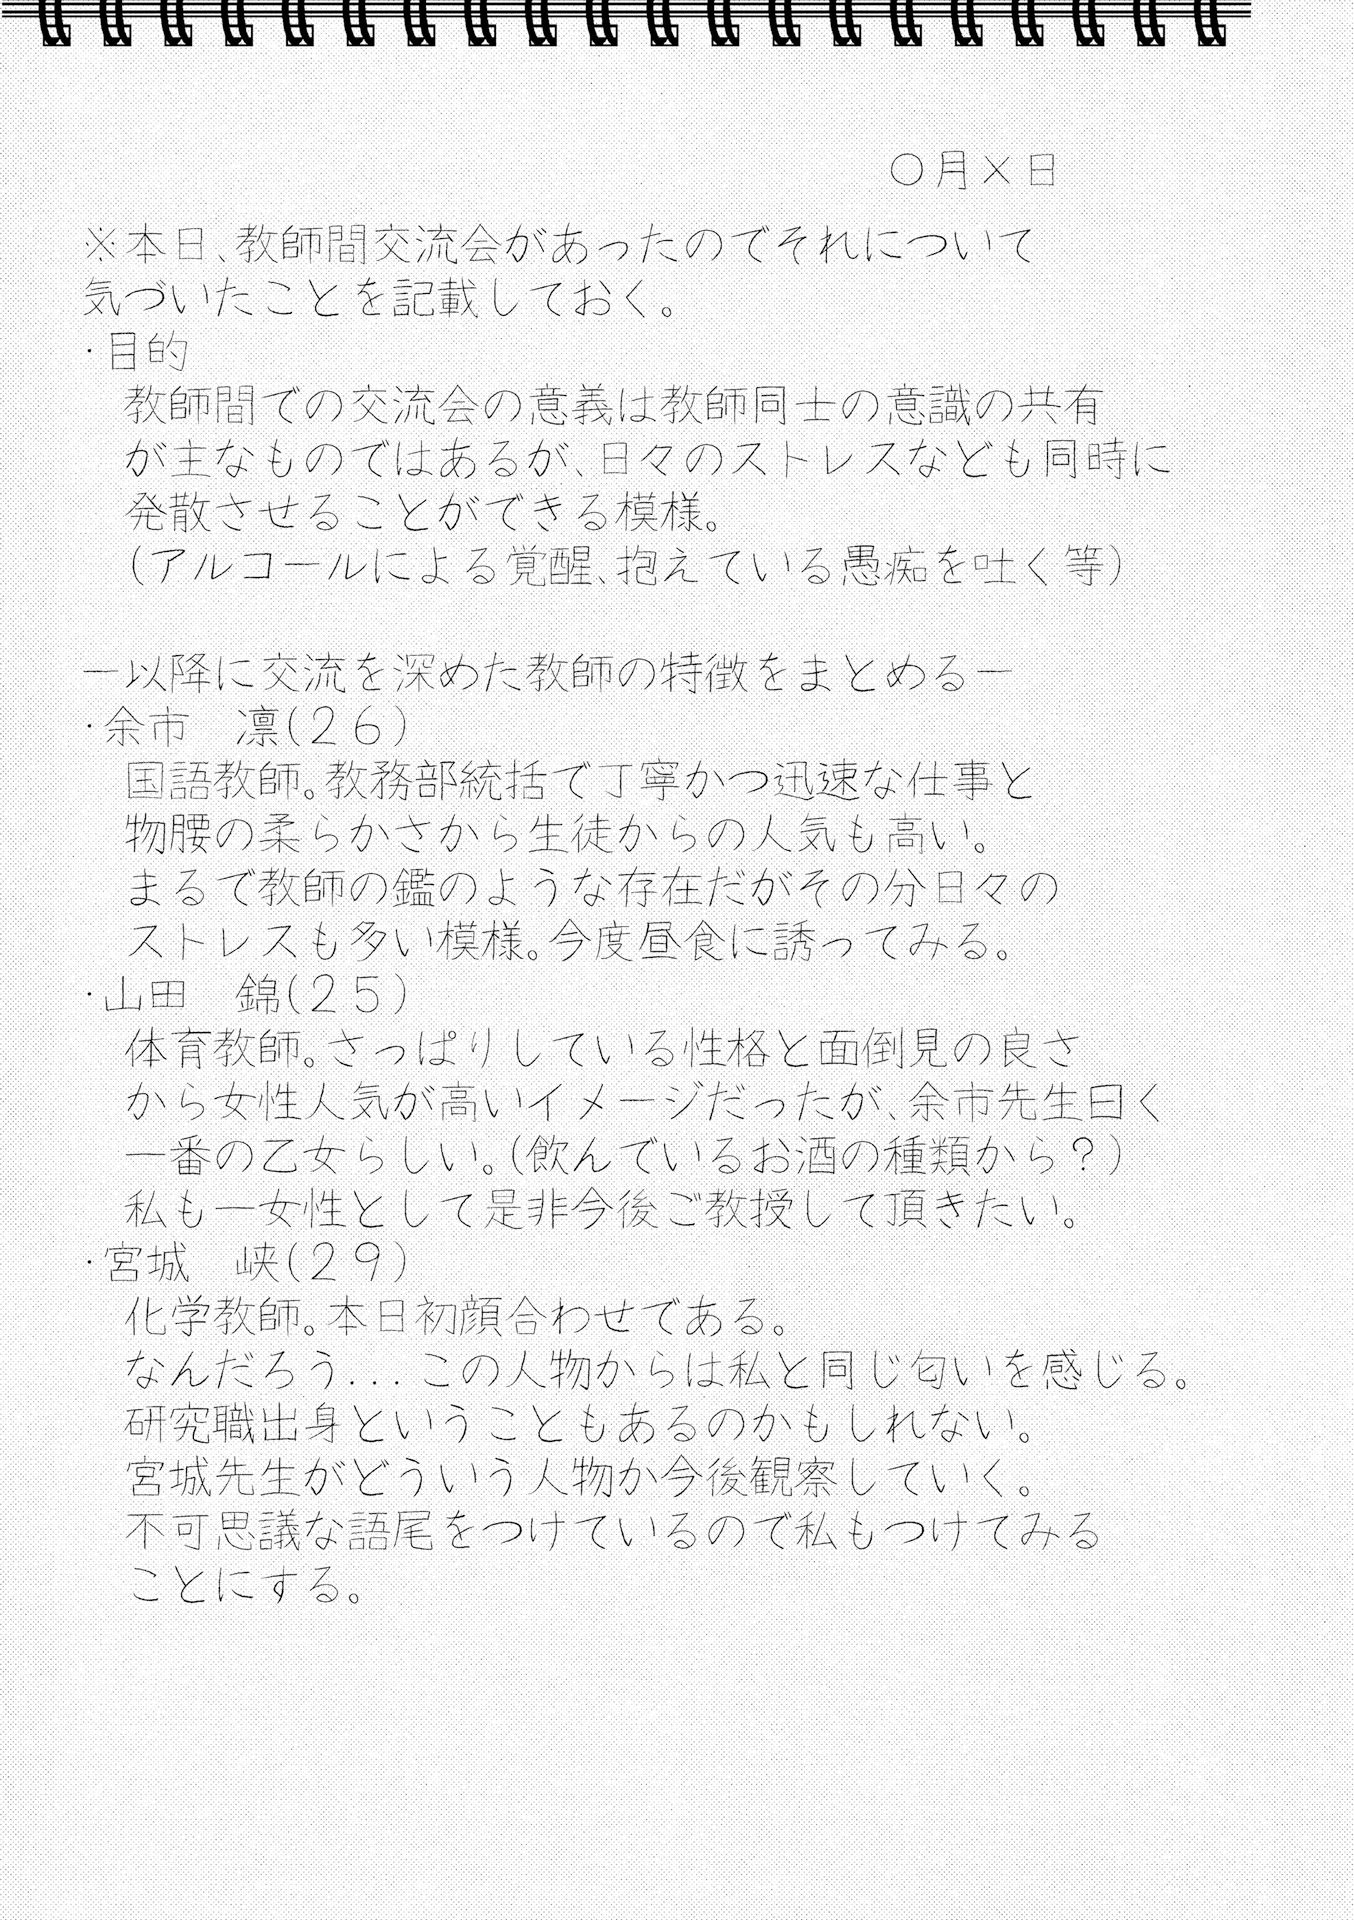 〇月×日
※本日、教師間交流会があったのでそれについて
気づいたことを記載しておく。
・目的
教師間での交流会の意義は教師同士の意識の共有
が主なものではあるが、日々のストレスなども同時に
発散させることができる模様。
(アルコールによる覚醒、抱えている愚痴を吐く等)
―以降に交流を深めた教師の特徴をまとめる―
・余市 凛(26)
国語教師。教務部統括で丁寧かつ迅速な仕事と
物腰の柔らかさから生徒からの人気も高い。
まるで教師の鑑のような存在だがその分日々の
ストレスも多い模様。今度昼食に誘ってみる。
・山田 錦(25)
体育教師。さっぱりしている性格と面倒見の良さ
から女性人気が高いイメージだったが、余市先生曰く
一番の乙女らしい。(飲んでいるお酒の種類から?)
私も一女性として是非今後ご教授して頂きたい。
・宮城 峡(29)
化学教師。本日初顔合わせである。
なんだろう...この人物からは私と同じ匂いを感じる。
研究職出身ということもあるのかもしれない。
宮城先生がどういう人物か今後観察していく。
不可思議な語尾をつけているので私もつけてみる
ことにする。